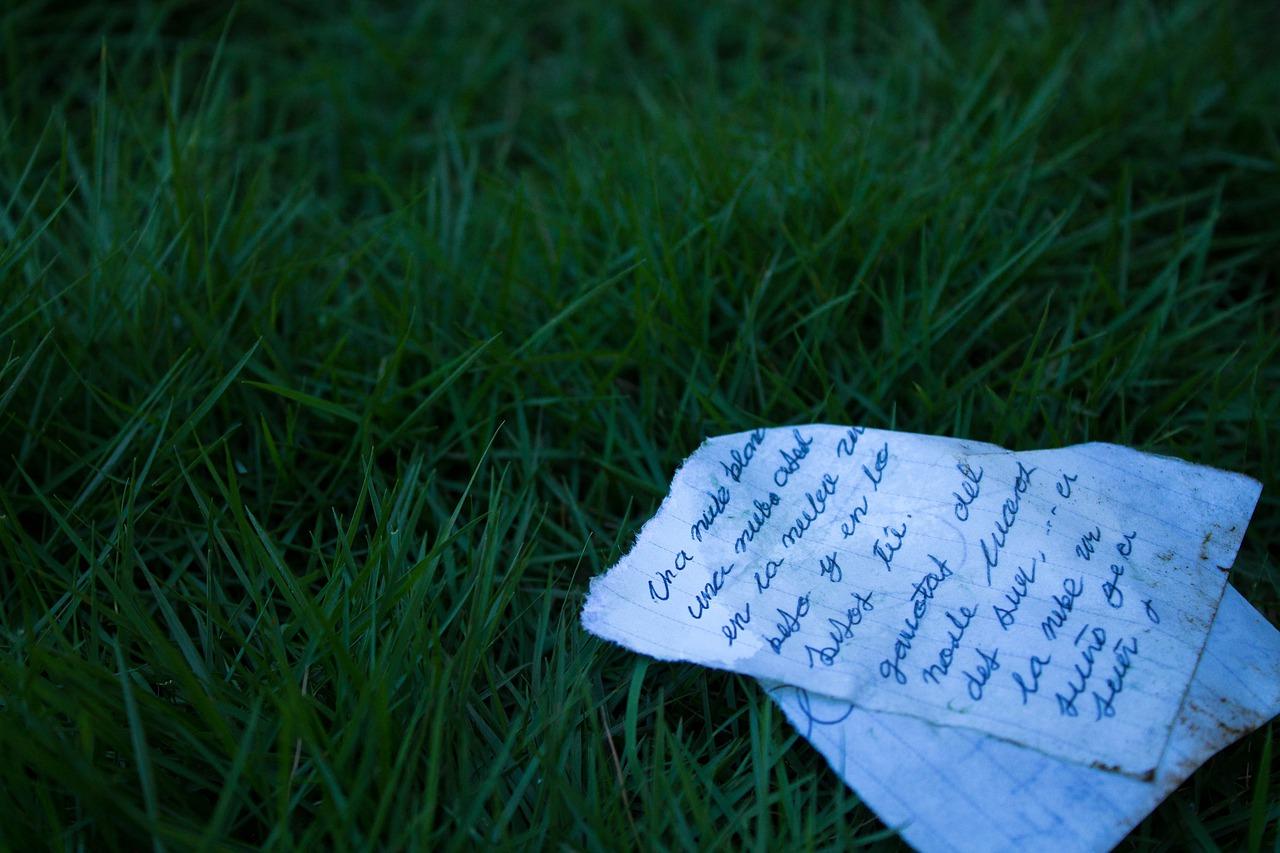 Una nube blan
una nube azul
en la nube un
beso y en lo
besos tú.
gaviotas del
norte luceros
del sur,
la nube un
sueño
sueñ